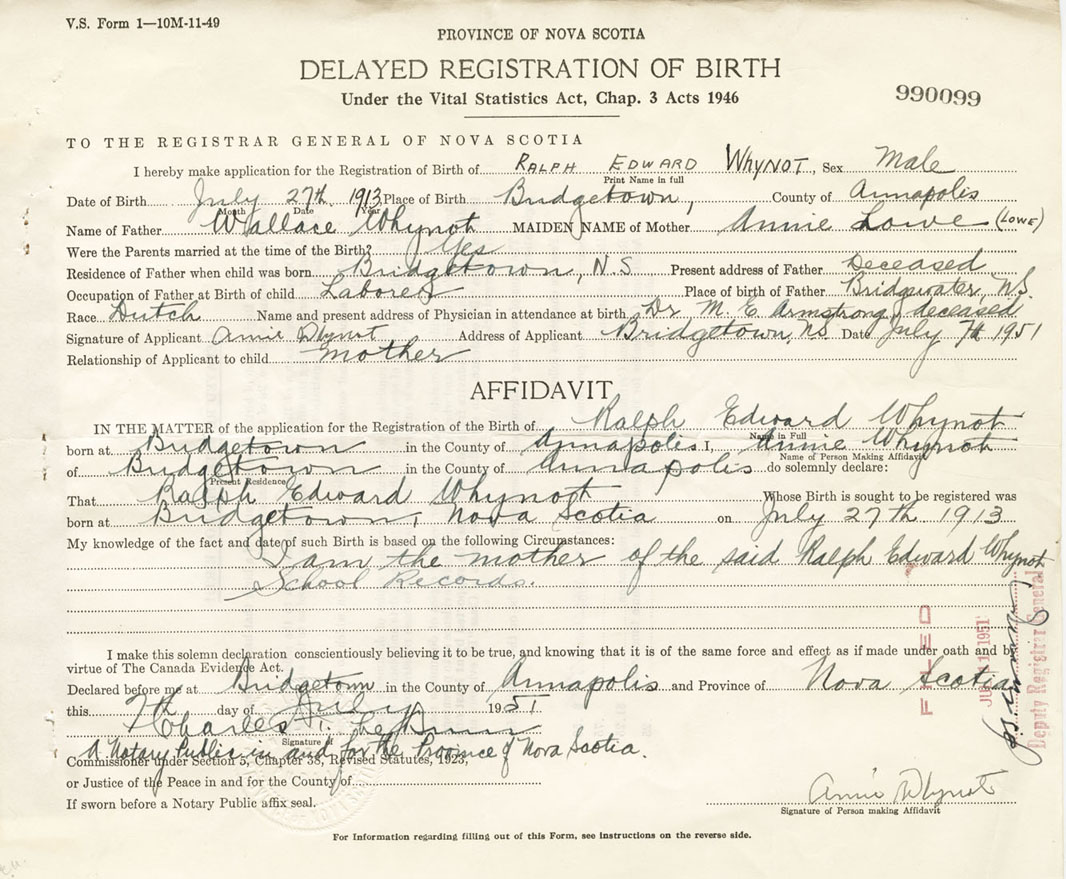 V.S. Form 1—10M-11-49
PROVINCE OF NOVA SCOTIA
DELAYED REGISTRATION OF BIRTH
Under the Vital Statistics Act, Chap. 3 Acts 1946
990099
TO THE REGISTRAR GENERAL OF NOVA SCOTIA
I hereby make application for the Registration of Birth of RALPH EDWARD WHYNOT, Sex Male
Print Name in full
Date of Birth July 27th 1913 Place of Birth Bridgetown, County of Annapolis
Month Date Year
Name of Father Wallace Whynot MAIDEN NAME of Mother Annie Lowe (LOWE)
Were the Parents married at the time of the Birth? Yes
Residence of Father when child was born Bridgetown, N.S Present address of Father Deceased
Occupation of Father at Birth of child Laborer Place of birth of Father Bridgewater, N.S.
Race Dutch Name and present address of Physician in attendance at birth Dr. M. E. Armstrong, deceased
Signature of Applicant Annie Whynot Address of Applicant Bridgetown, NS Date July 7th 1951
Relationship of Applicant to child mother
AFFIDAVIT
IN THE MATTER of the application for the Registration of the Birth of Ralph Edward Whynot
Name in Full
born at Bridgetown in the County of Annapolis I, Annie Whynot
Name of Person Making Affidavit
of Bridgetown in the County of Annapolis do solemnly declare:
Present Residence
That Ralph Edward Whynot Whose Birth is sought to be registered was
born at Bridgetown, Nova Scotia on July 27th 1913
My knowledge of the fact and date of such Birth is based on the following Circumstances:
I am the mother of the said Ralph Edward Whynot
School Records.
I make this solemn declaration conscientiously believing it to be true, and knowing that it is of the same force and effect as if made under oath and by
virtue of The Canada Evidence Act.
Declared before me at Bridgetown in the County of Annapolis and Province of Nova Scotia
this 7th day of July 1951
Charles
Signature of
A Notary Public in and for the Province of Nova Scotia.
Commissioner under Section 5, Chapter 38, Revised Statutes, 1923,
or Justice of the Peace in and for the County of
If sworn before a Notary Public affix seal.
Annie Whynot
Signature of Person making Affidavit
For Information regarding filling out of this Form, see instructions on the reverse side.
FILED
1951
Deputy Registrar General